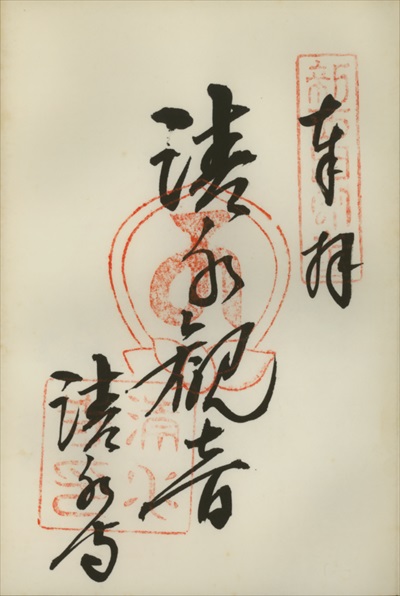 奉拝
清水観音
清水寺